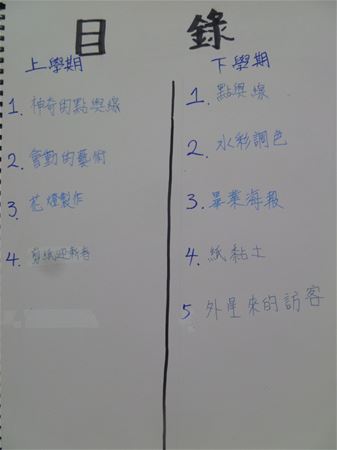 目錄
上學期
1. 神奇的點與線
2. 會動的藝術
3. 花燈製作
4. 剪紙迎新春
下學期
1. 點與線
2. 水彩調色
3. 畢業海報
4. 紙黏土
5. 外星來的訪客